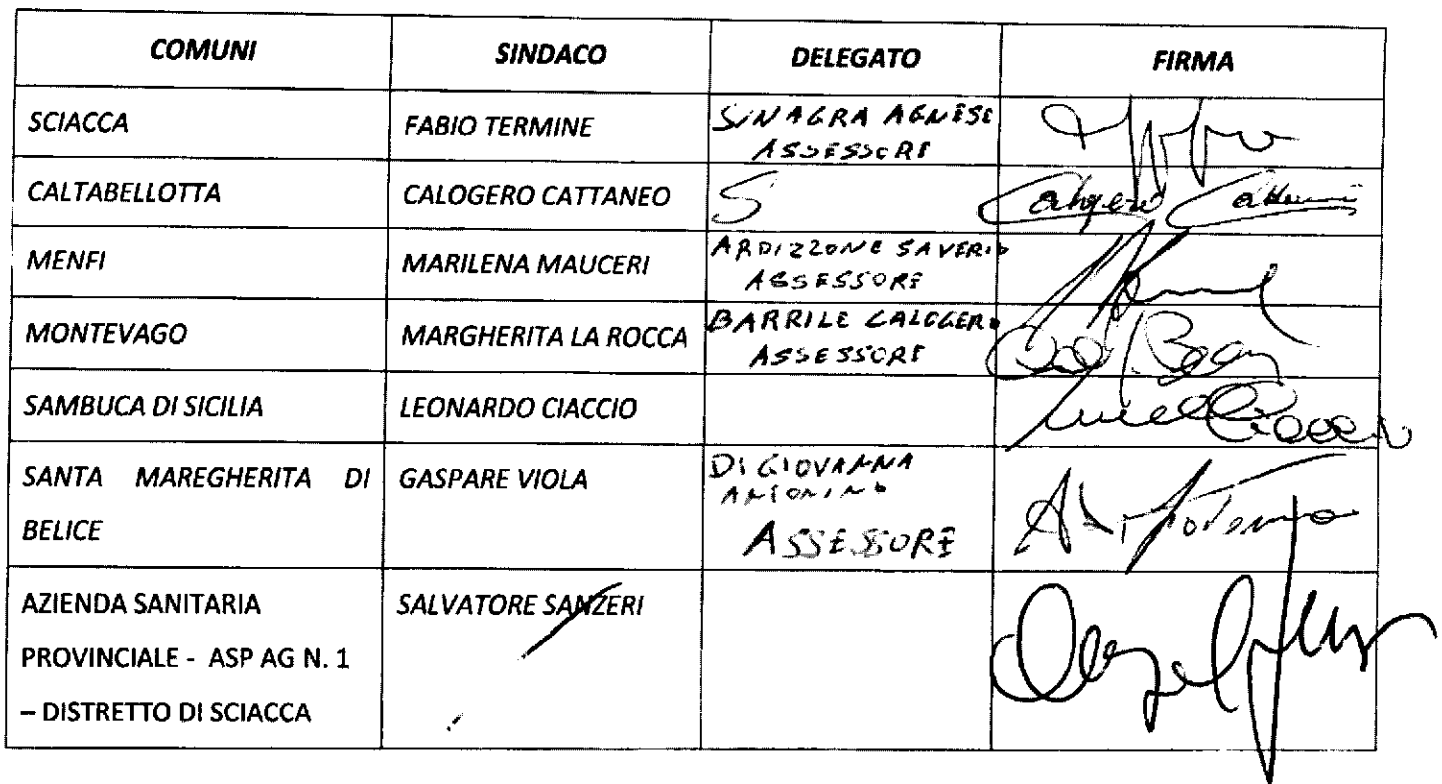 COMUNI SINDACO DELEGATO FIRMA
SCIACCA FABIO TERMINE SINAGRA AGNESE
ASSESSORE
CALTABELLOTTA CALOGERO CATTANEO S Calogero Cattaneo
MENFI MARILENA MAUCERI ARDIZZONE SAVERIO
ASSESSORE
MONTEVAGO MARGHERITA LA ROCCA BARRILE CALOGERO
ASSESSORE
SAMBUCA DI SICILIA LEONARDO CIACCIO
SANTA MAREGHERITA DI GASPARE VIOLA DI GIOVANNA
ANTONINO
BELICE ASSESSORE
AZIENDA SANITARIA SALVATORE SANZERI
PROVINCIALE - ASP AG N. 1
– DISTRETTO DI SCIACCA